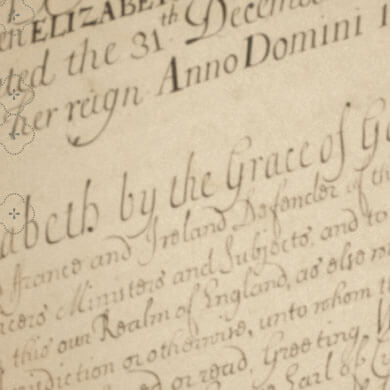 en ELIZABET
ted the 31th December
her reign Anno Domini 1
abeth by the Grace of Go
France and Ireland Defender of th
icers Ministers and Subjects, and to
this our Realm of England, as also
isdiction or otherwise, unto whom th
or read, Greeting,
Earl of